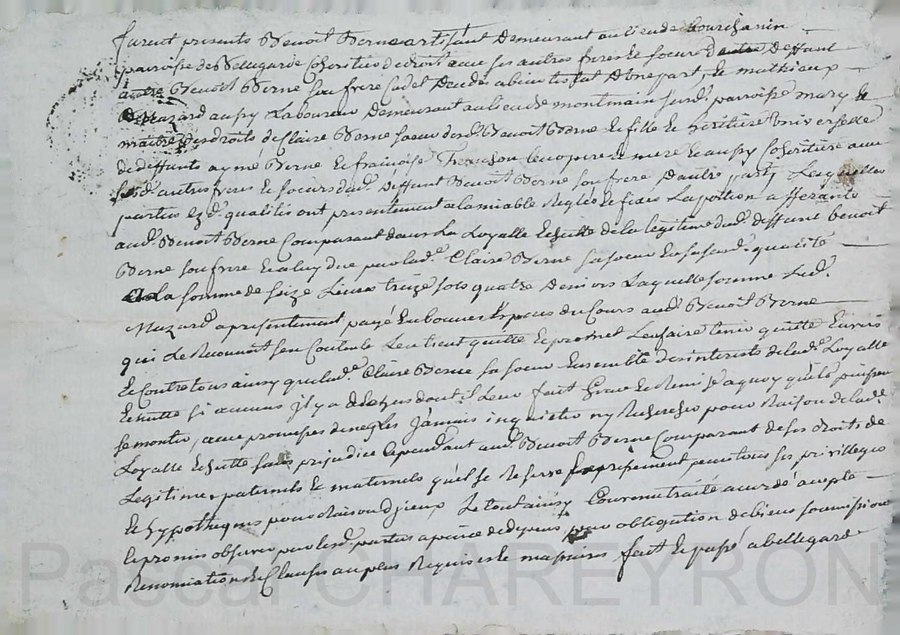 furent presents Benoit Berne artisant demeurant au lieu de Courchanin
parroisse de Bellegarde coheritier de droit avec ses autres freres et soeurs deffunt
autre Benoit Berne son frere cadet decedé abintestat d'une part, et mathieux
Mazard aussy Laboureur demeurant au lieu de montmain susd. parroisse mary et
maitre des droits de Claire Berne soeur desd. Benoit Berne et fille et heritiere universelle
de deffunts ayme Berne et françoise ses pere et mere et aussy coheritiere avec
sesd. autres freres et soeurs dud. deffunt Benoit Berne son frere d'autre part, Lesquelles
parties ezd. qualités ont presentement a lamiable Reglé et fixé La portion afferante
aud. Benoit Berne Comparant dans La Loyalle Echutte de la legitime dud. deffunt benoit
Berne son frere et a luy due par lad. Claire Berne sa soeur en sasusd. qualité
a La somme de seize Livres treize sols quatre deniers Laquelle somme Led.
Mazard a presentement payé en bonnes Especes du Cours aud. Benoit Berne
qui Le Reconnoit s'en Contente L'en tient quitte Et promet L'en faire tenir quitte Envers
Et Contre tous aussy que lad. Claire Berne sa soeur Ensemble des interests de lad. Loyalle
Echutte si aucuns il y a dont il Leur fait Grace et Remise a quoy qu'ils puissent
se monter, avec promesses de ne Les Jamais inquietter ny Rechercher pour Raison de lad.
Loyalle Echutte sans prejudice Cependant aud. Benoit Berne Comparant de ses droits de
Legitimes paternels et maternels qu'il se Reserve Expressement avec tous ses privilleges
Et hypotheques pour Raison d'jceux Le tout ainsy Convenu traité accordé accepté
Et promis observer par lesd. parties a peine de depens par obligation de biens soumissions
Renonciations et Clauses au plus Requises et necessaires fait Et passé a bellegarde
Pascal CHAREYRON